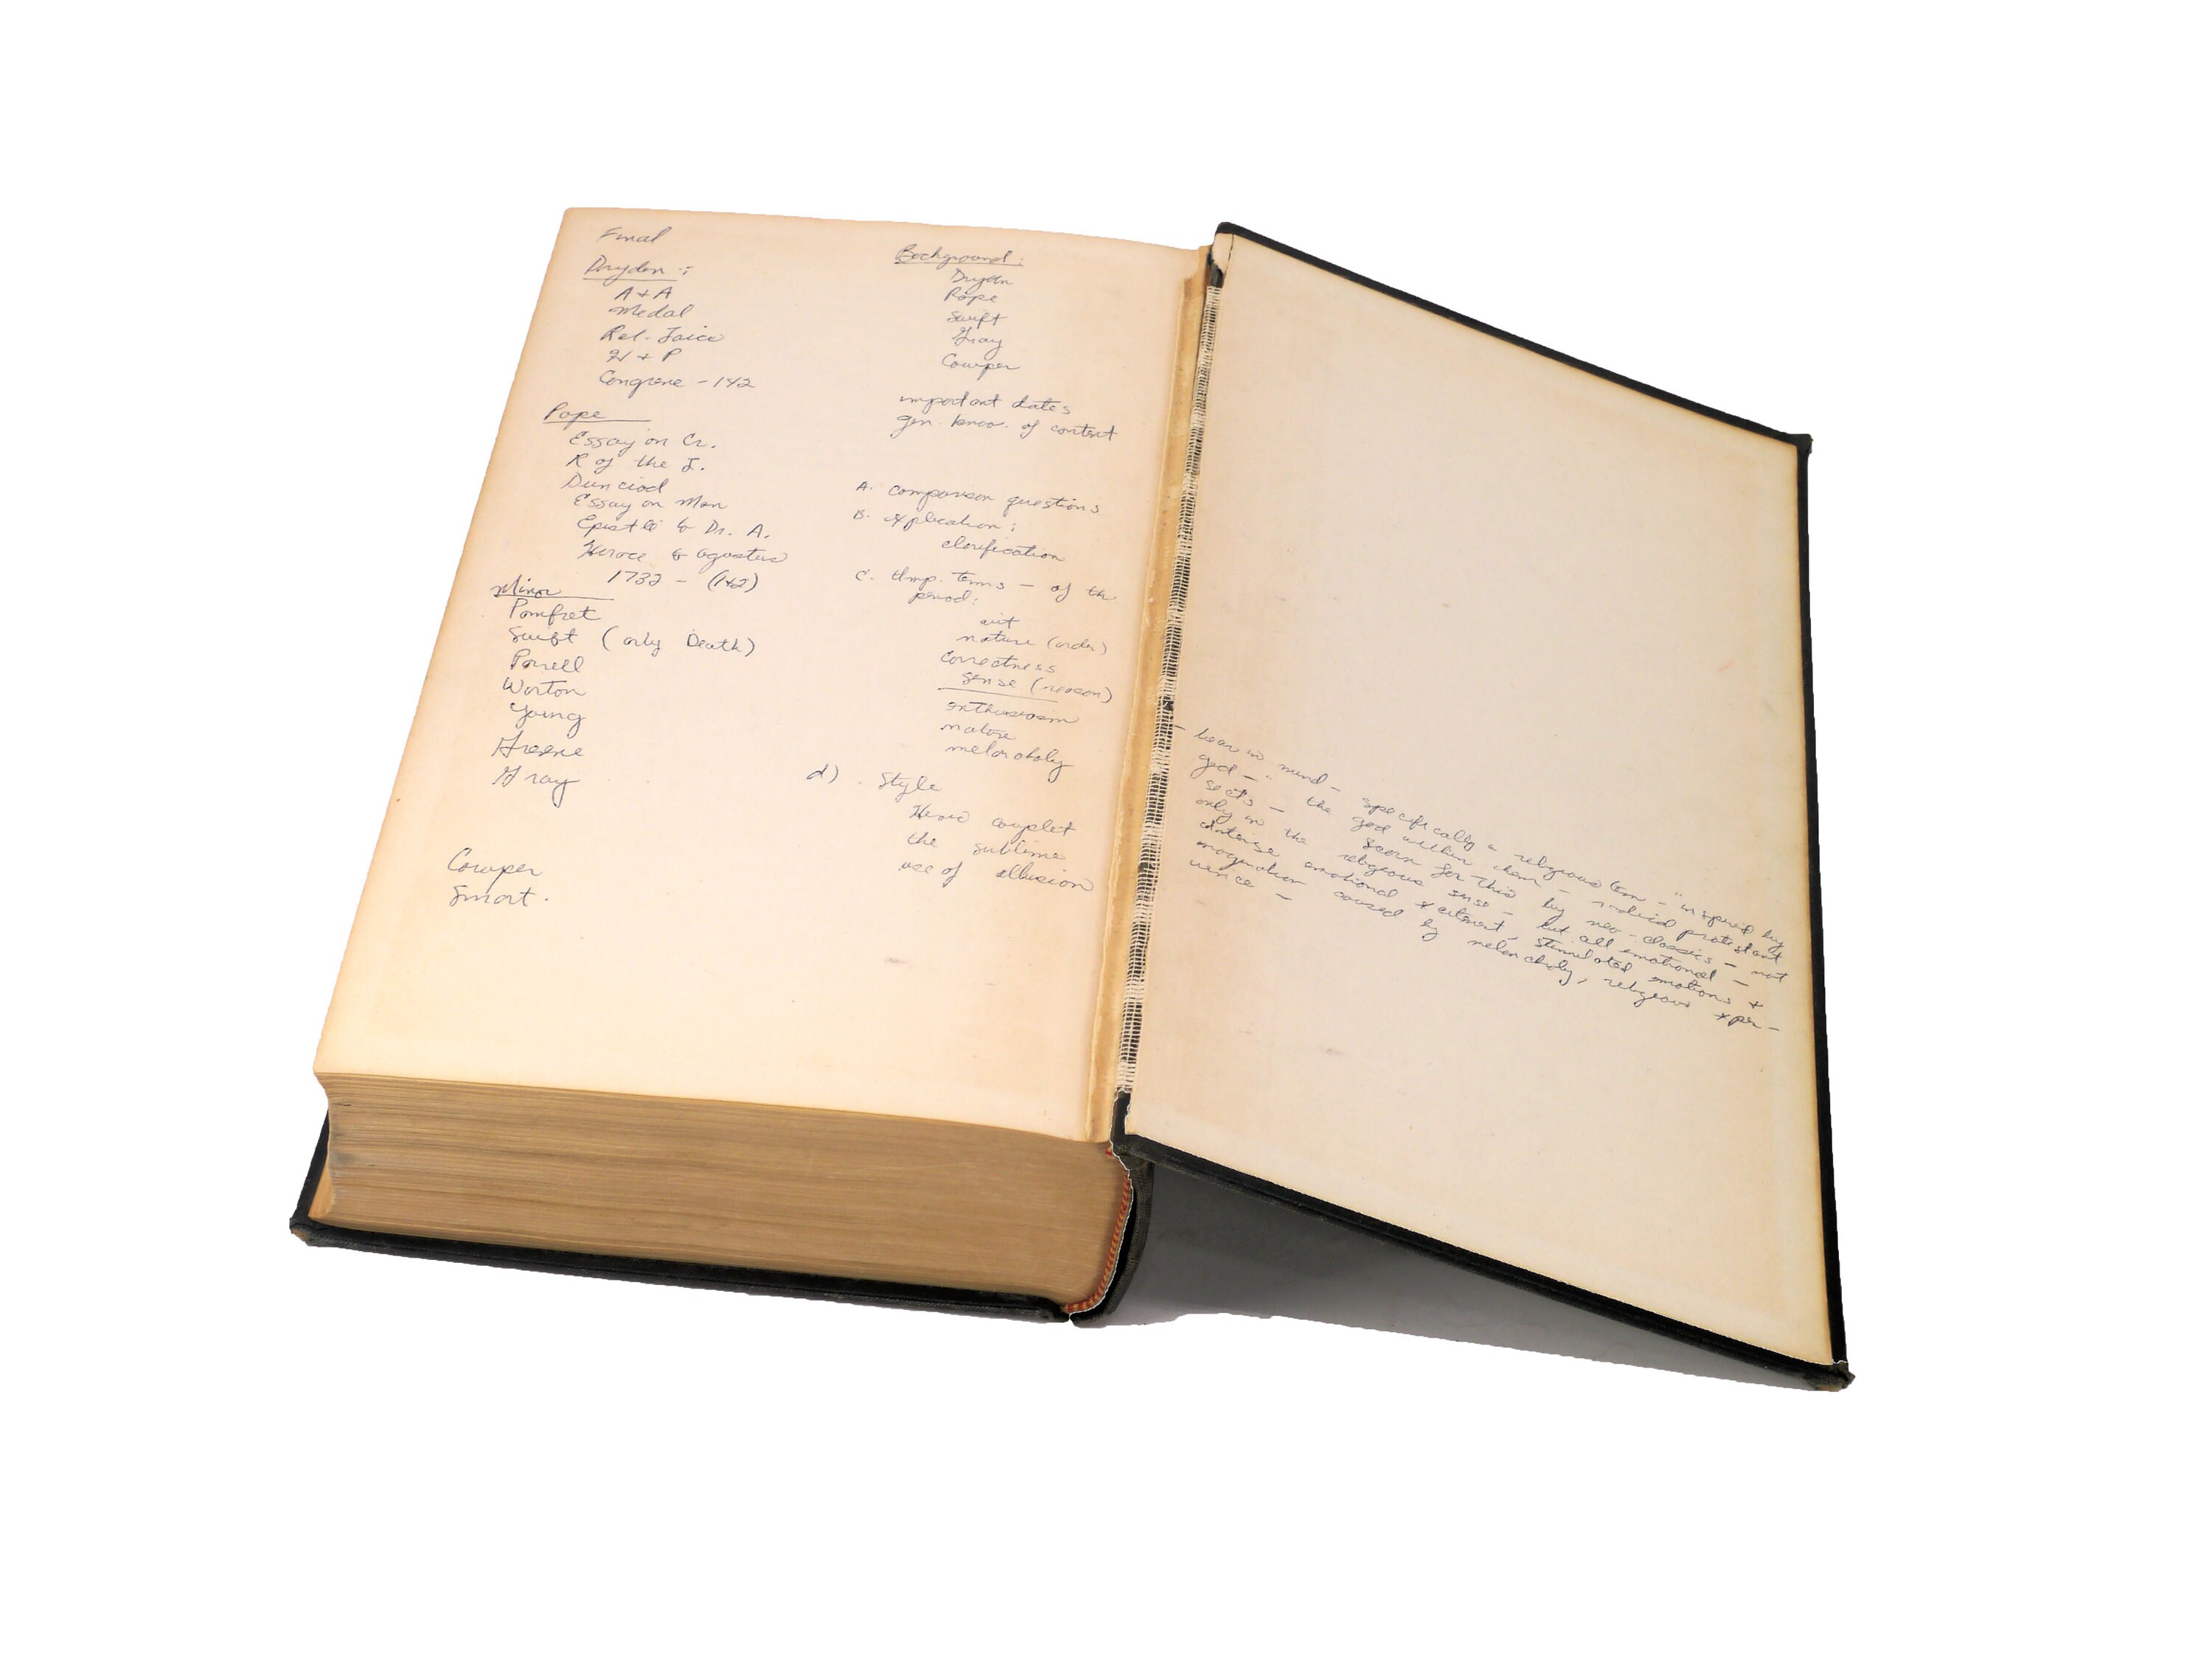 Final
Dryden:
A + A
Medal
Rel. Laice
H + P
Congreve - 142
Pope
Essay on Cr.
R of the L.
Dunciad
Essay on Man
Epistle to Dr. A.
Horace to Agustus
1732 - (1+2)
Minor
Pomfret
Swift (only Death)
Parnell
Warton
Young
Greene
Gray
Cowper
Smart.
Background:
Dryden
Pope
Swift
Gray
Cowper
important dates
gen. know. of content
A. comparison questions
B. explication:
clarification
C. Imp. terms - of the
period:
wit
nature (order)
correctness
sense (reason)
enthusiasm
nature
melancholy
d). Style
Heroic couplet
the sublime
use of allusion
- bear in mind - specifically a religious term - "inspired by
god - " the god within them - radical protestant
sects - scorn for this by neo-classics - not
only in the religious sense - but all emotional -
intense emotional excitement, stimulated emotions +
imagination caused by melancholy, religious exper-
ience -